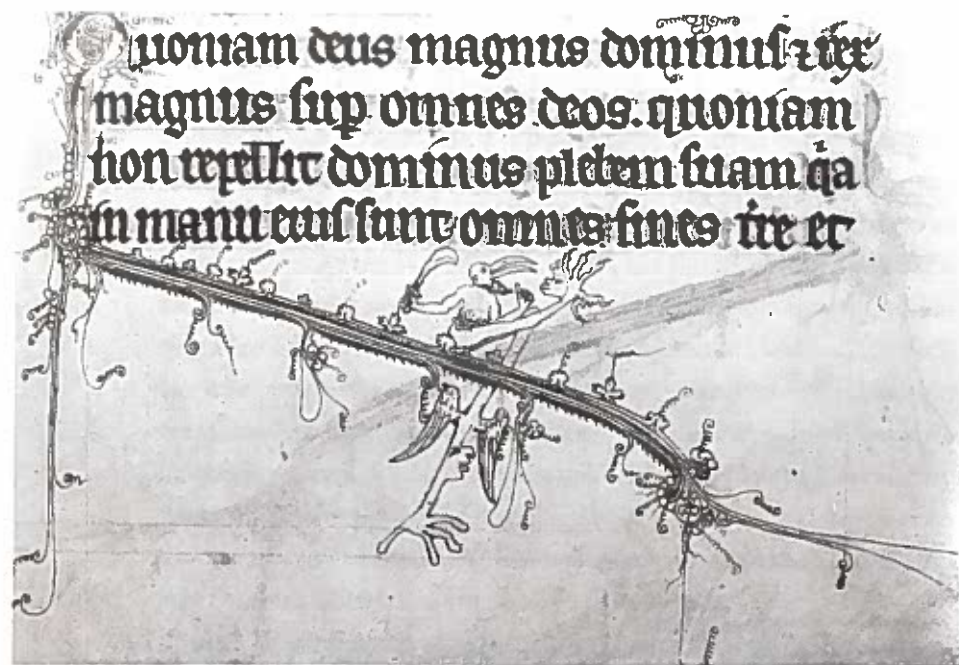 Quoniam deus magnus dominus ⁊ rex
magnus sup̱ omnes deos. quoniam
non repellit dominus plebem suam qͥa
in manu eius sunt omnes fines tr̄e et